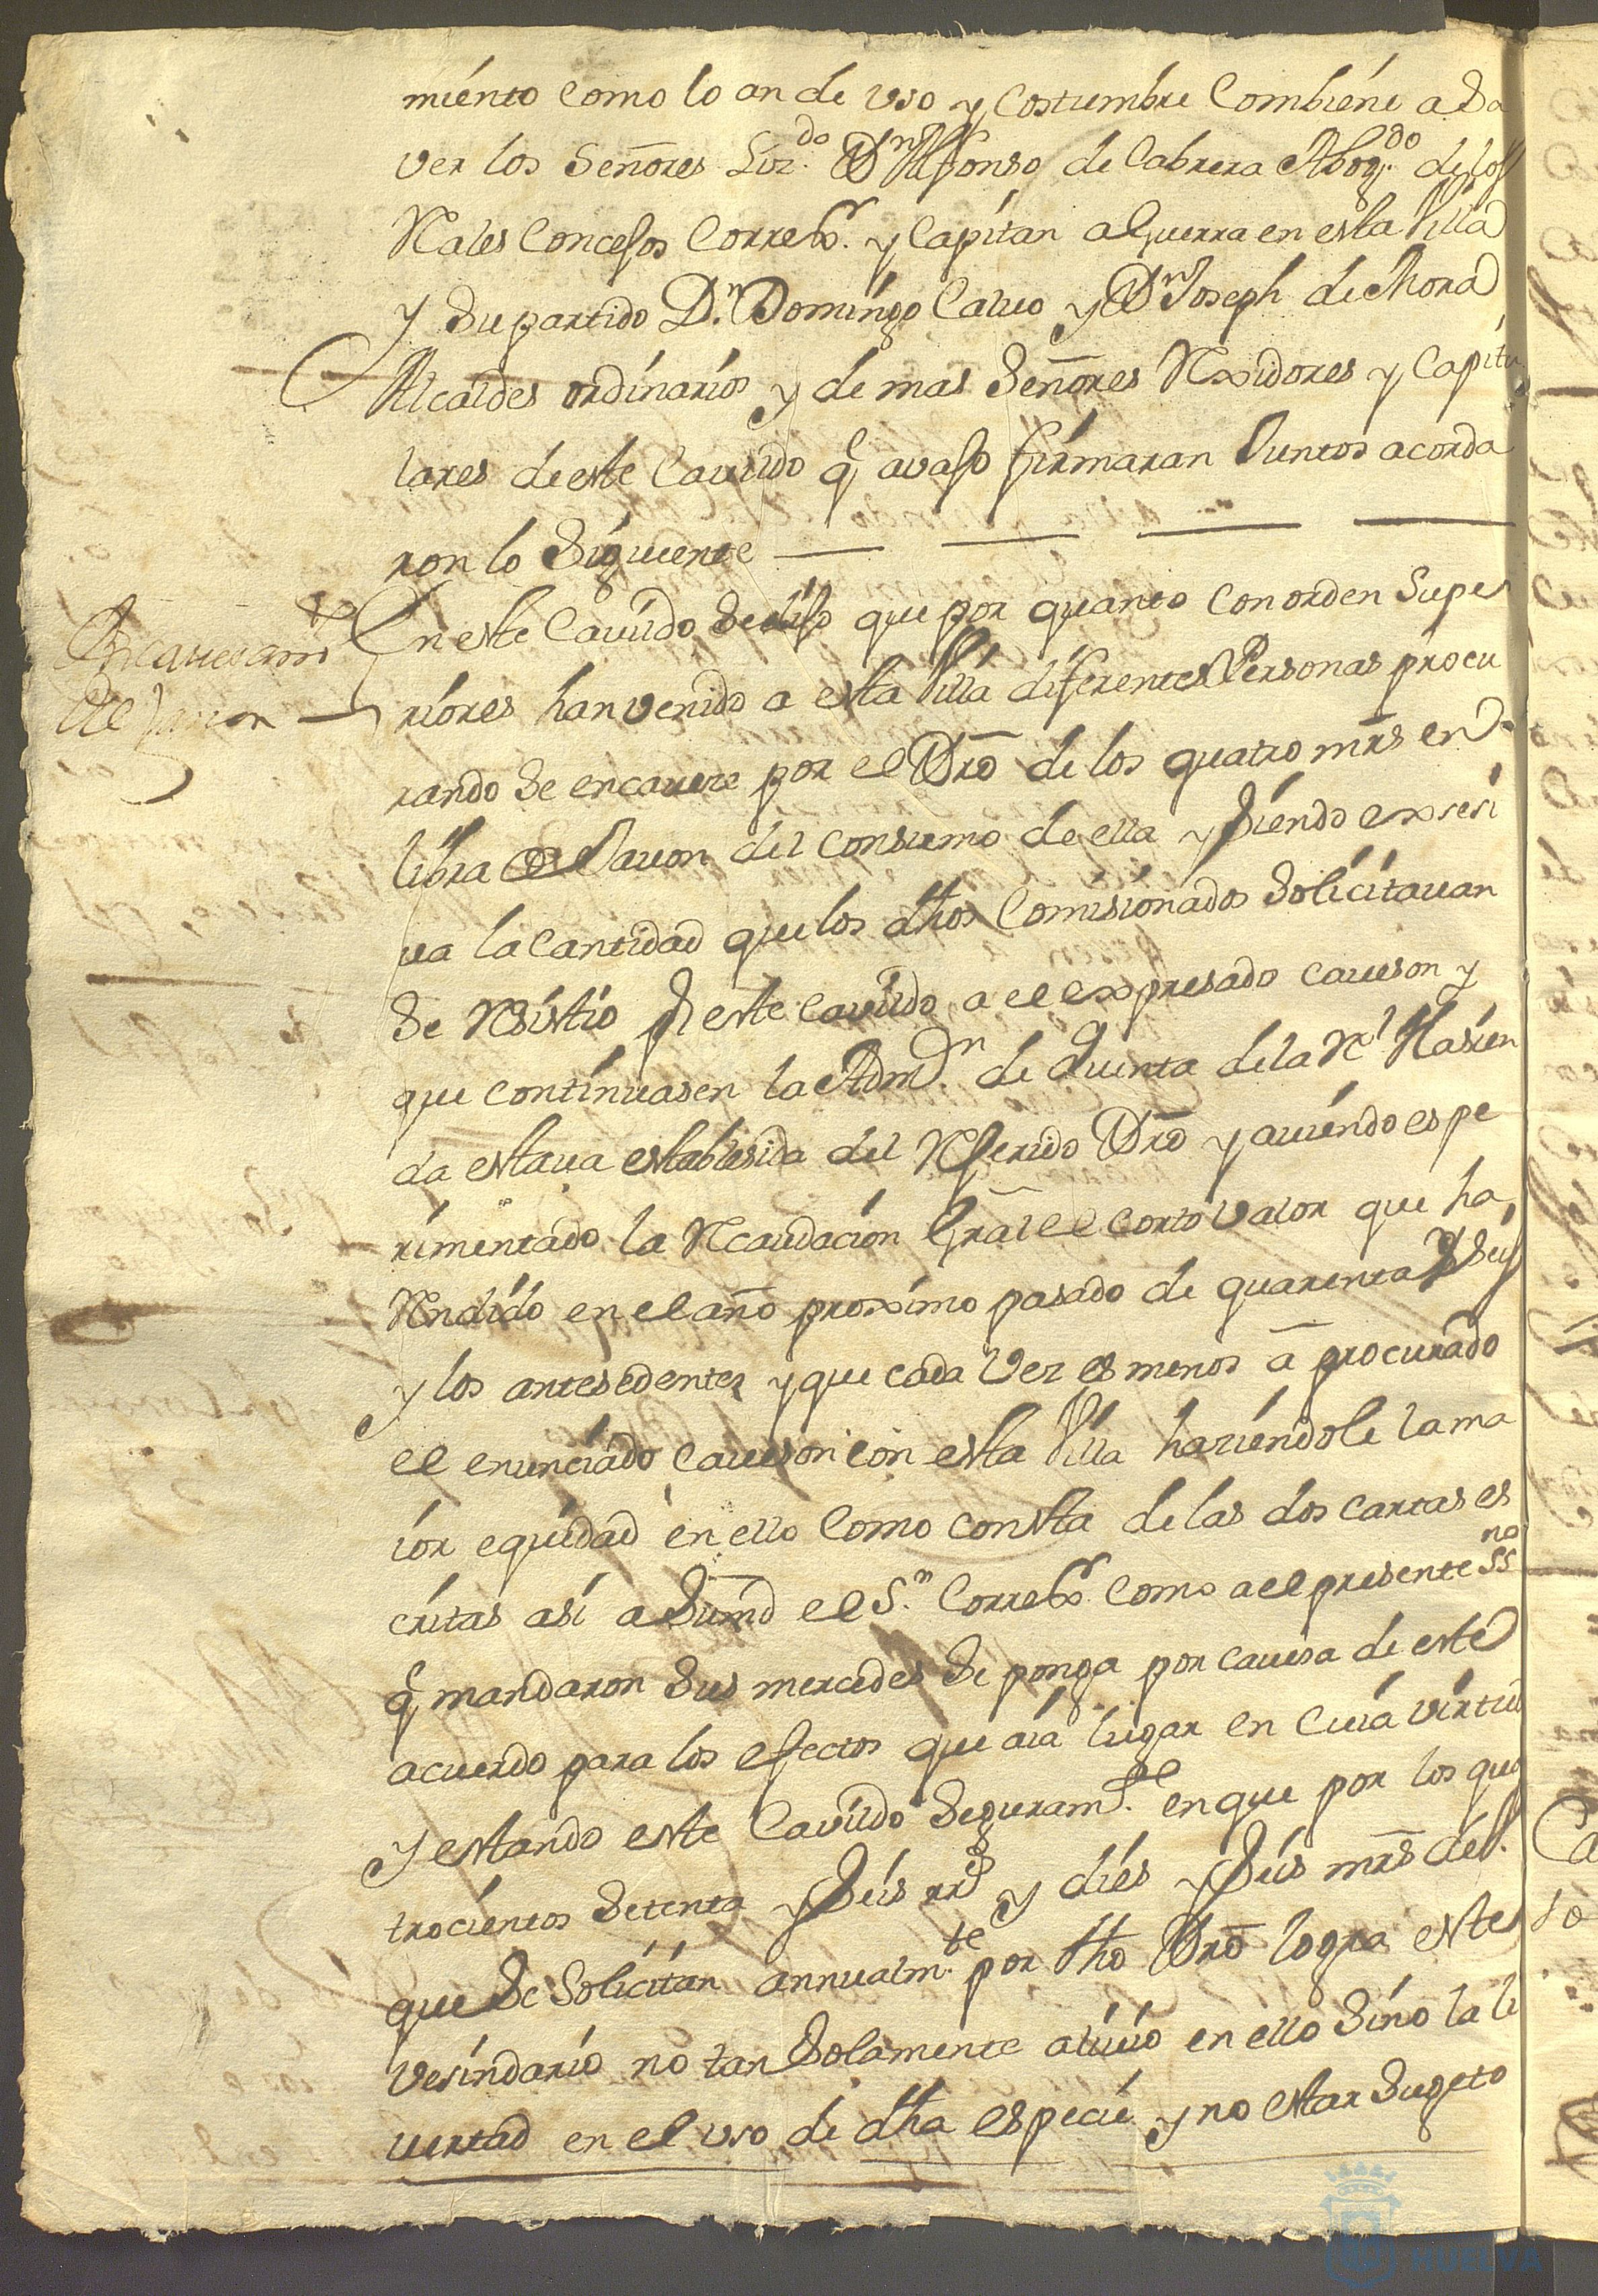 miento como lo an de vso y costumbre combiene a Sa
ver los Señores Liz.do Dn Alfonso de Cabrera Abog.do de los
Rales Consejos Correxr. y Capitan a Guerra en esta Villa
y Su partido D.n Domingo Calvo y Dn Joseph de Mora
Alcaldes ordinarios y de mas Señores Rexidores y Capitu
lares de este Cavildo q avajo firmaran Juntos acorda
ron lo Siguiente
Encavezami.to
del Javon
En este Cavildo Se dijo que por quanto con orden Supe
riores han venido a esta Villa diferentes Personas procu
rando Se encaveze por el Dro de los quatro mrs en
libra de Javon del consumo de ella y Siendo exsesi
va la cantidad que los dhos Comisionados Solicitavan
Se Resistio Pr este Cavildo a el expresado caveson y
que continuasen la Adm.on de quenta de la Rl Hasien
da estava establesida del Referido Dro y aviendo espe
rimentado la Recaudacion Gral el corto valor que ha
Rendido en el año proximo pasado de quarenta y Seis
y los antesedentes y que cada Vez es menos a procurado
el enunciado caveson con esta Villa haziendole la ma
ior equidad en ello como consta de las dos cartas es
critas asi a Sumd el S.or Correxr. como a el presente ssno
q mandaron Sus mercedes Se ponga por cavesa de este
acuerdo para los efectos que aia lugar en cuia virtud
y estando este Cavildo Seguram.te en que por los qua
trocientos Setenta y Seis rrs y dies y Seis mrs de Vn
que Se Solicitan annualm.te por dho Dro logra este
Vesindario no tan Solamente alivio en ello Sino la li
vertad en el vso de dha especie y no estar Sugeto
HUELVA